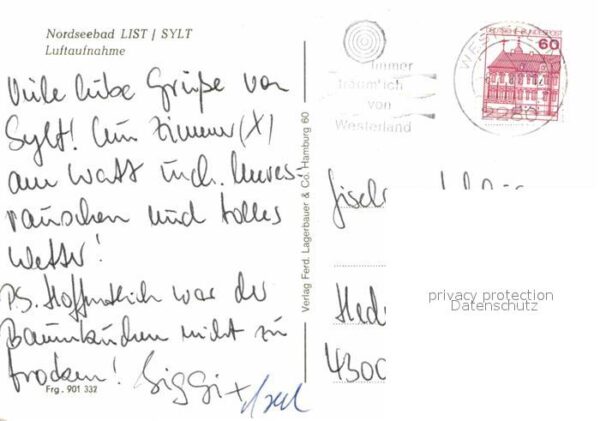 Nordseebad LIST / SYLT
Luftaufnahme
Viele liebe Grüße von
Sylt! Ein Zimmer (X)
am Watt incl. Meeres-
rauschen und tolles
Wetter!
P.S. Hoffentlich war der
Baumkuchen nicht zu
trocken! Siggi +
Frg. 901 332
Verlag Ferd. Lagerbauer & Co. Hamburg 60
Immer
träum'ich
von
Westerland
DEUTSCHE BUNDESPOST
60
2280
Gisela
4300
privacy protection
Datenschutz